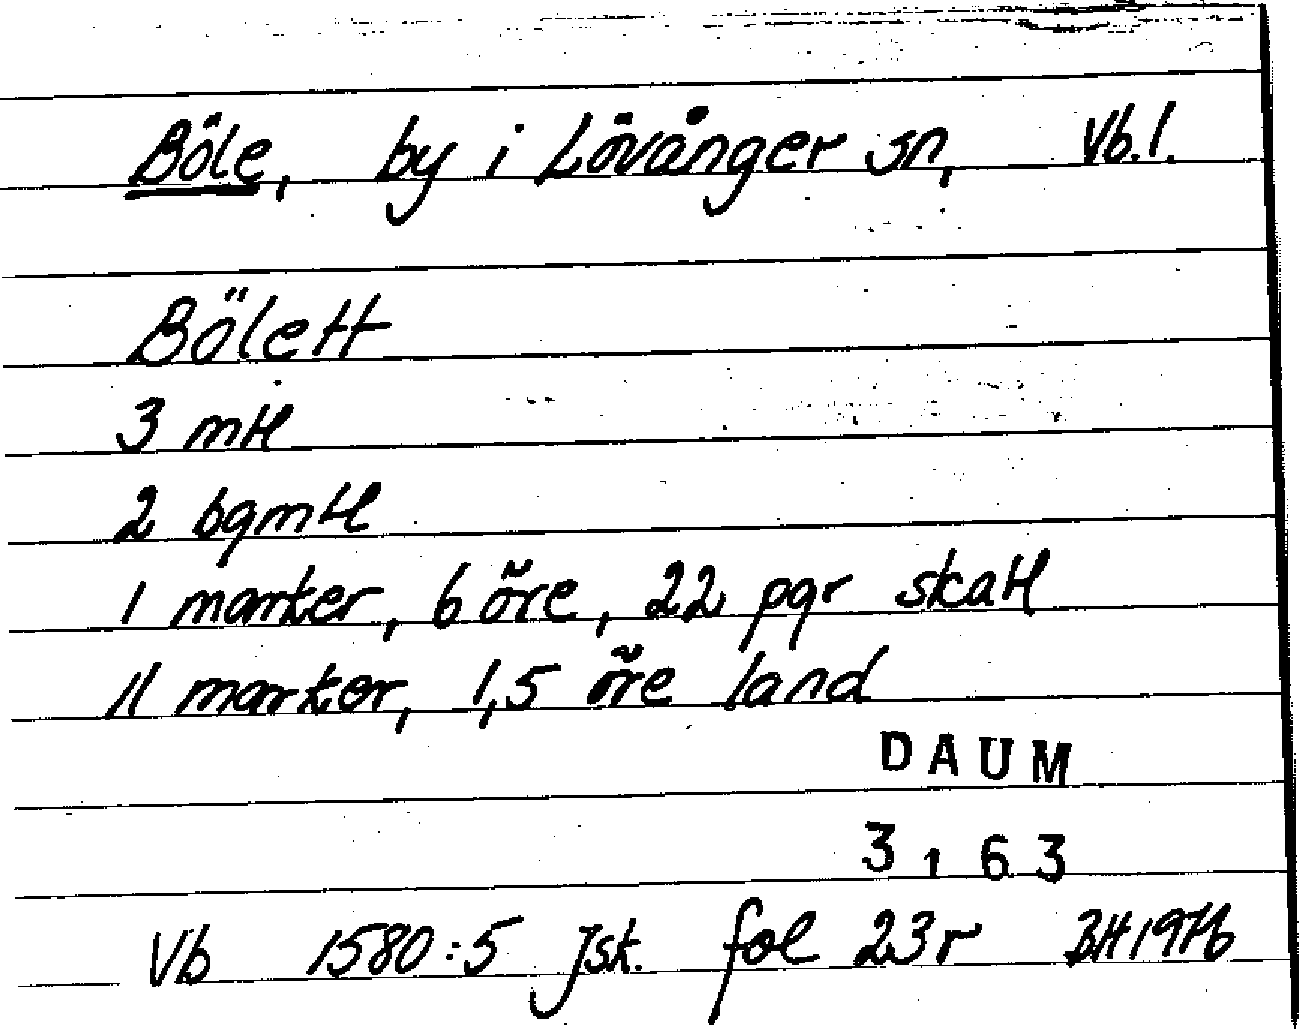 Böle, by i Lövånger sn, Vb.l.
Bölett
3 mtl
2 bgmtl
1 marker, 6 öre, 22 pgr skatt
11 marker, 1,5 öre land
DAUM
3163
Vb 1580:5 Jsk. fol 23r BH1976